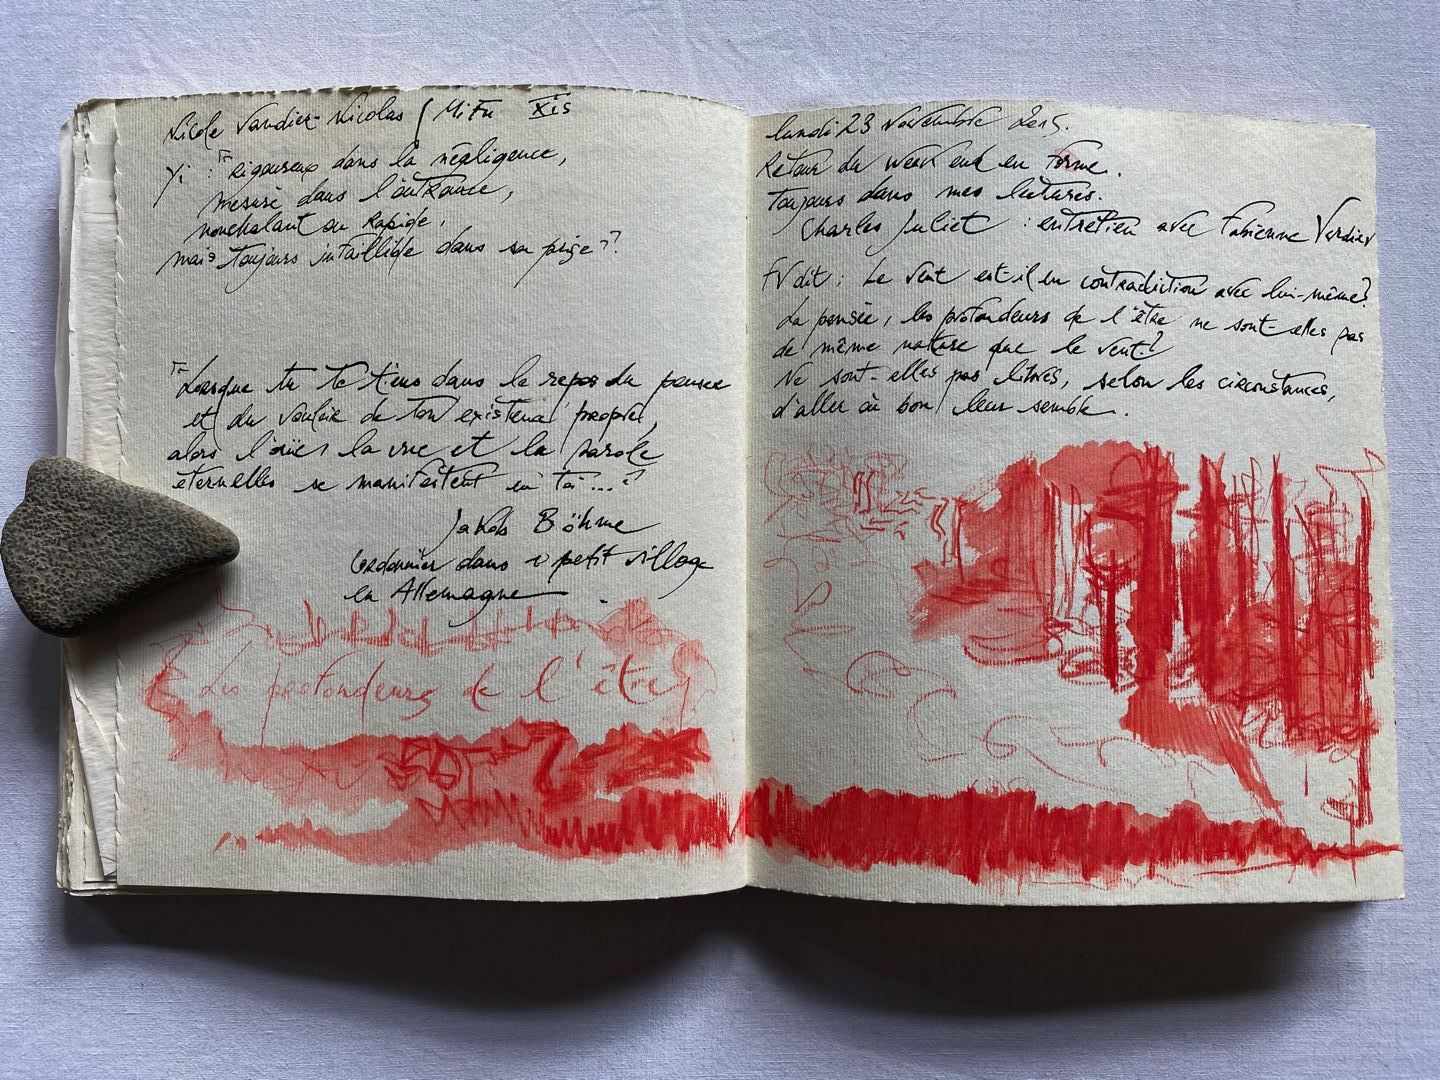 Nicole Vandier-Nicolas / Mi Fu XIs
Yi : "Rigoureux dans la négligence,
mesuré dans l'outrance,
nonchalant ou rapide,
mais toujours infaillible dans sa prise"
"Lorsque tu te tiens dans le repos du penser
et du vouloir de ton existence propre,
alors l'ouïe, la vue et la parole
éternelles se manifestent en toi..."
Jakob Böhme
Cordonnier dans 1 petit village
en Allemagne.
Les profondeurs de l'être
lundi 23 novembre 2015.
Retour du week end en forme.
Toujours dans mes lectures.
Charles Juliet : entretien avec Fabienne Verdier
FV dit : Le vent est-il en contradiction avec lui-même?
La pensée, les profondeurs de l'être ne sont-elles pas
de même nature que le vent?
Ne sont-elles pas libres, selon les circonstances,
d'aller où bon leur semble.